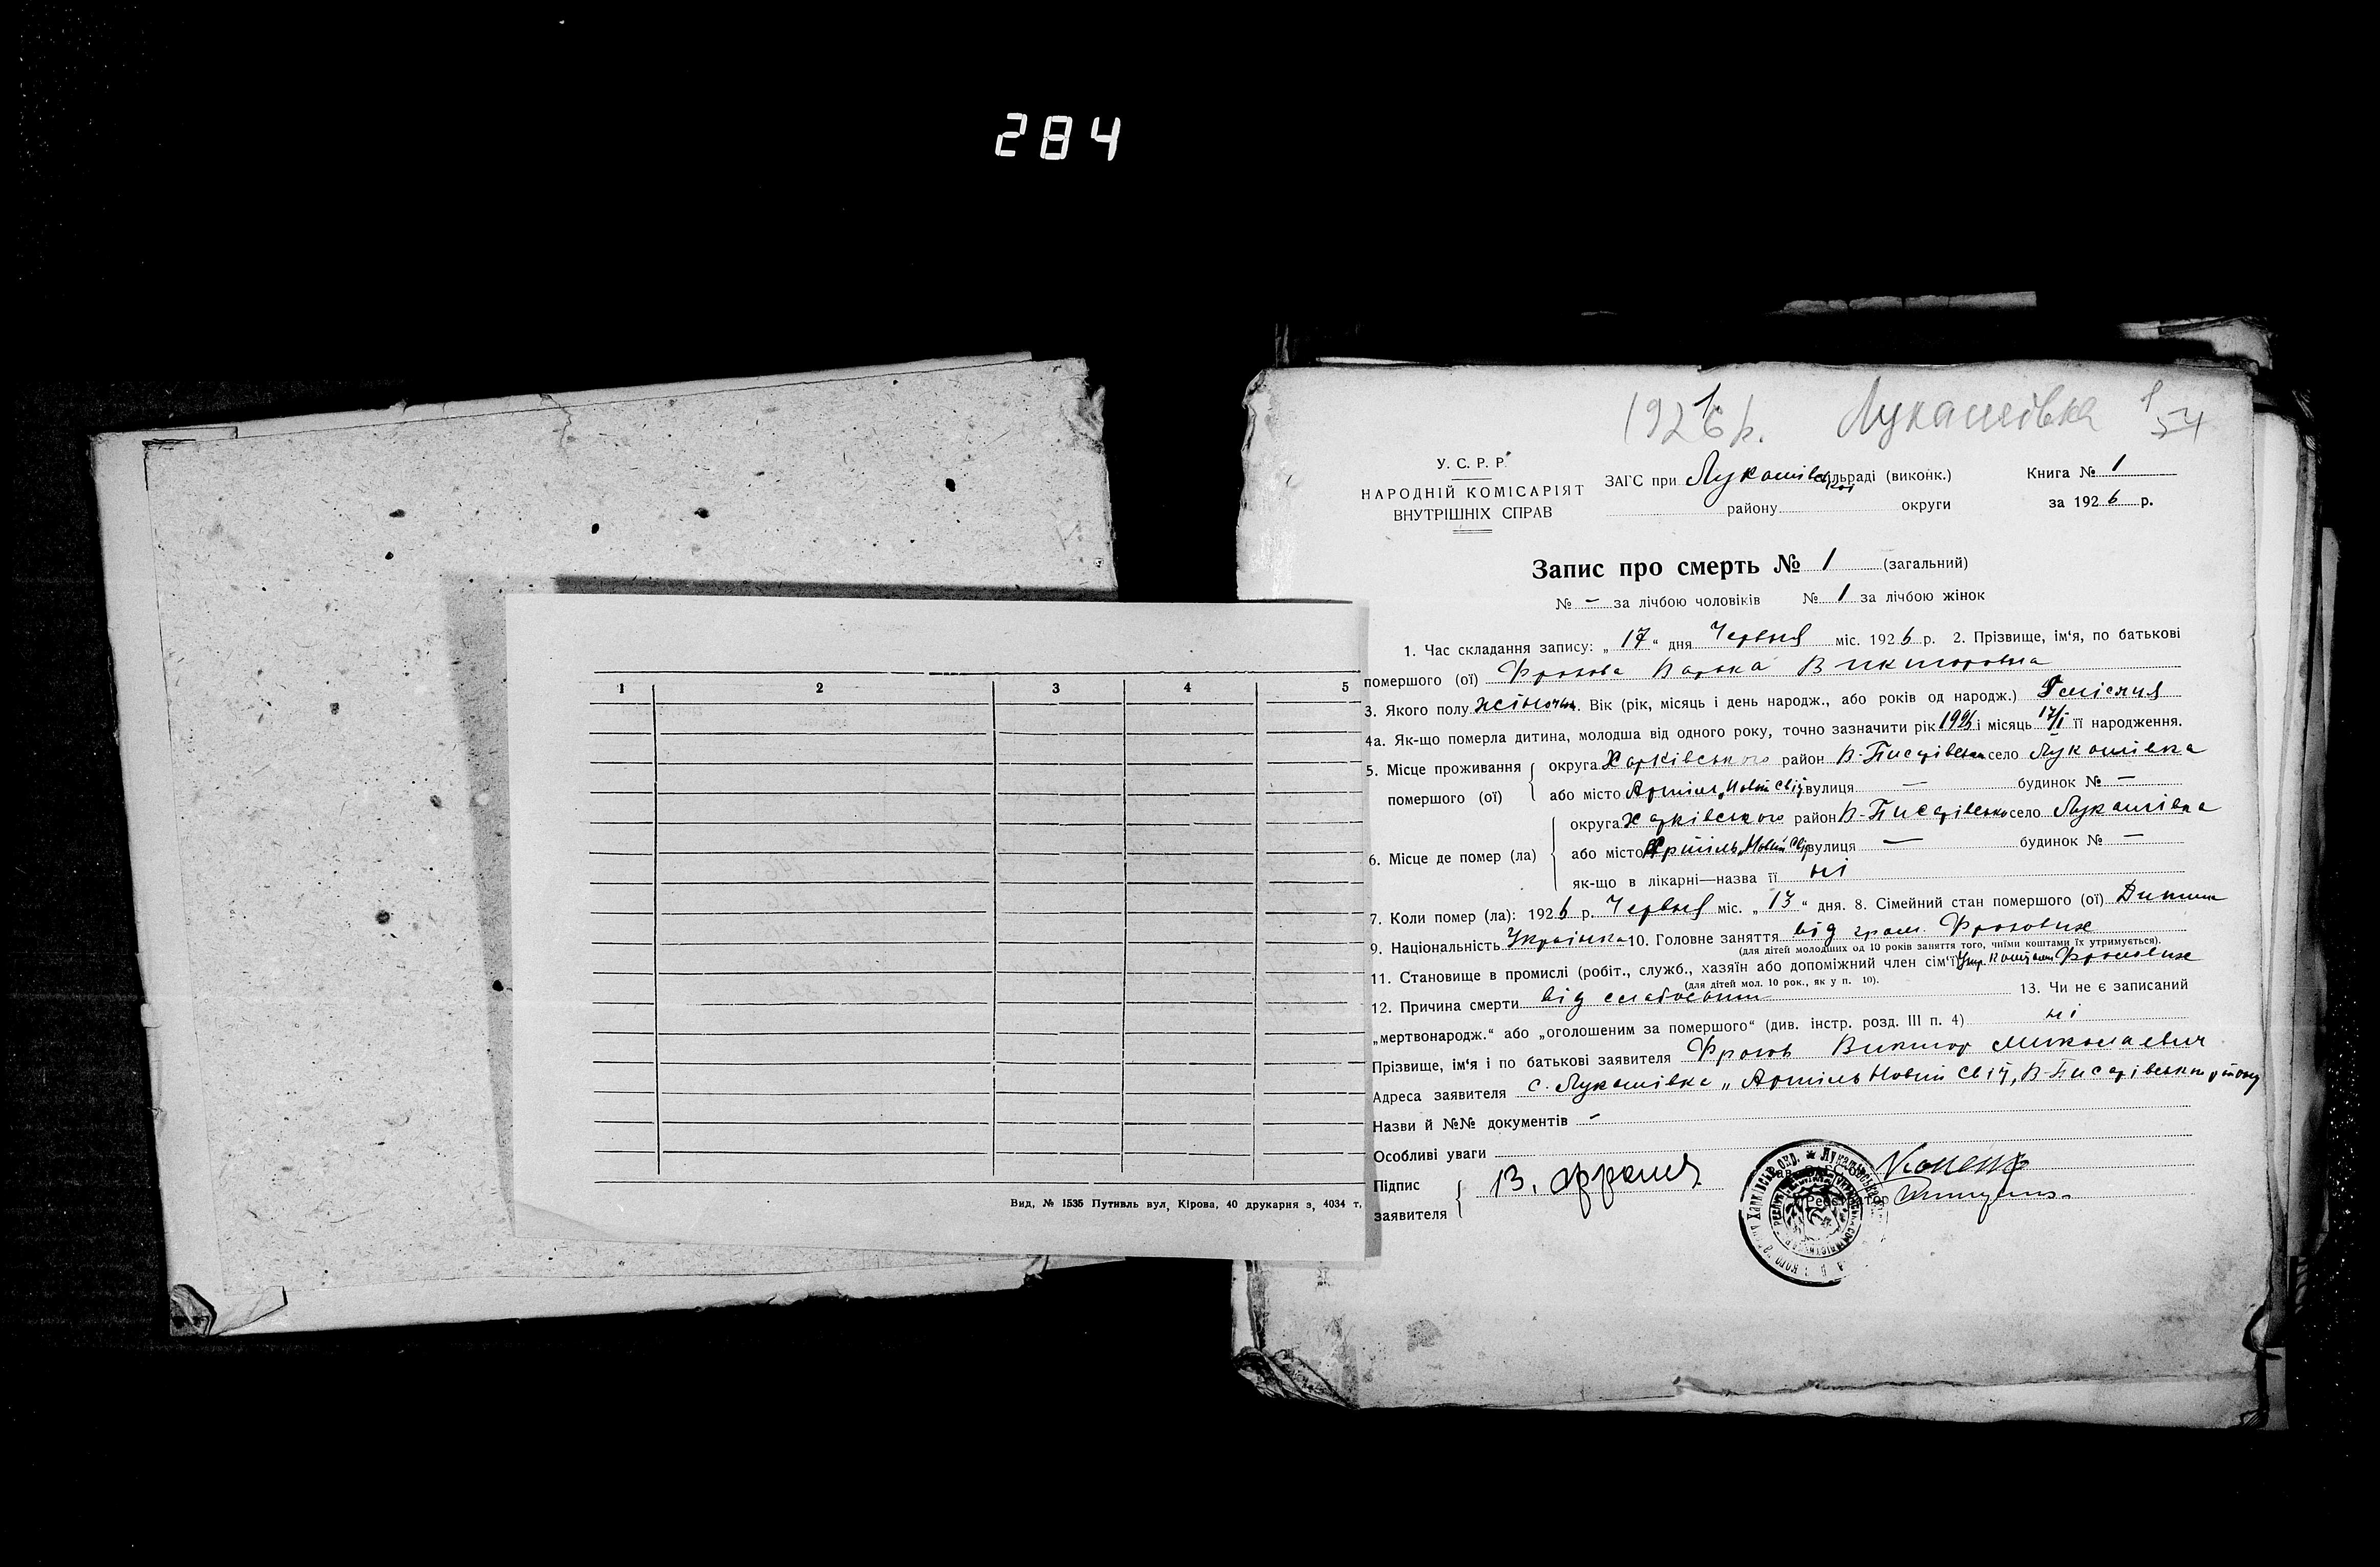 284
1 2 3 4 5
Вид, № 1535 Путивль вул, Кірова, 40 друкарня з, 4034 т,
1926 р. Лукашівка 1 54
У. С. Р. Р.
НАРОДНІЙ КОМІСАРІЯТ
ВНУТРІШНІХ СПРАВ
ЗАГС при Лукашівській сільраді (виконк.)
району округи
Книга № 1
за 1926 р.
Запис про смерть № 1 (загальний)
№ – за лічбою чоловіків № 1 за лічбою жінок
1. Час складання запису: „17“ дня Червня міс. 1926 р. 2. Прізвище, ім‘я, по батькові
помершого (ої) Фролова Варка Викторовна
3. Якого полу жіноча. Вік (рік, місяць і день народж., або років од народж.) місяця
4а. Як-що померла дитина, молодша від одного року, точно зазначити рік 1926 і місяць 17/I її народження.
5. Місце проживання помершого (ої) округа Харківського район В-Писарівськ село Лукашівка
або місто Артіль „Новий Світ вулиця – будинок № –
6. Місце де помер (ла) округа Харківського район В-Писарівсько село Лукашівка
або місто Артіль „Новий Світ вулиця – будинок № –
як-що в лікарні—назва її ні
7. Коли помер (ла): 1926 р. Червня міс. „13“ дня. 8. Сімейний стан помершого (ої) Дитина
9. Національність Українка 10. Головне заняття від
(для дітей молодших од 10 років заняття того, чиїми коштами їх утримується).
11. Становище в промислі (робіт., служб., хазяїн або допоміжний член сім‘ї)
(для дітей мол. 10 рок., як у п. 10).
12. Причина смерти від слабости 13. Чи не є записаний
„мертвонародж.“ або „оголошеним за помершого“ (див. інстр. розд. III п. 4) ні
Прізвище, ім‘я і по батькові заявителя Фролов Виктор Миколаевич
Адреса заявителя с. Лукашівка „Артіль Новий Світ, В-Писарівськ району
Назви й №№ документів –
Особливі уваги
Підпис
заявителя В.
Реєстратор